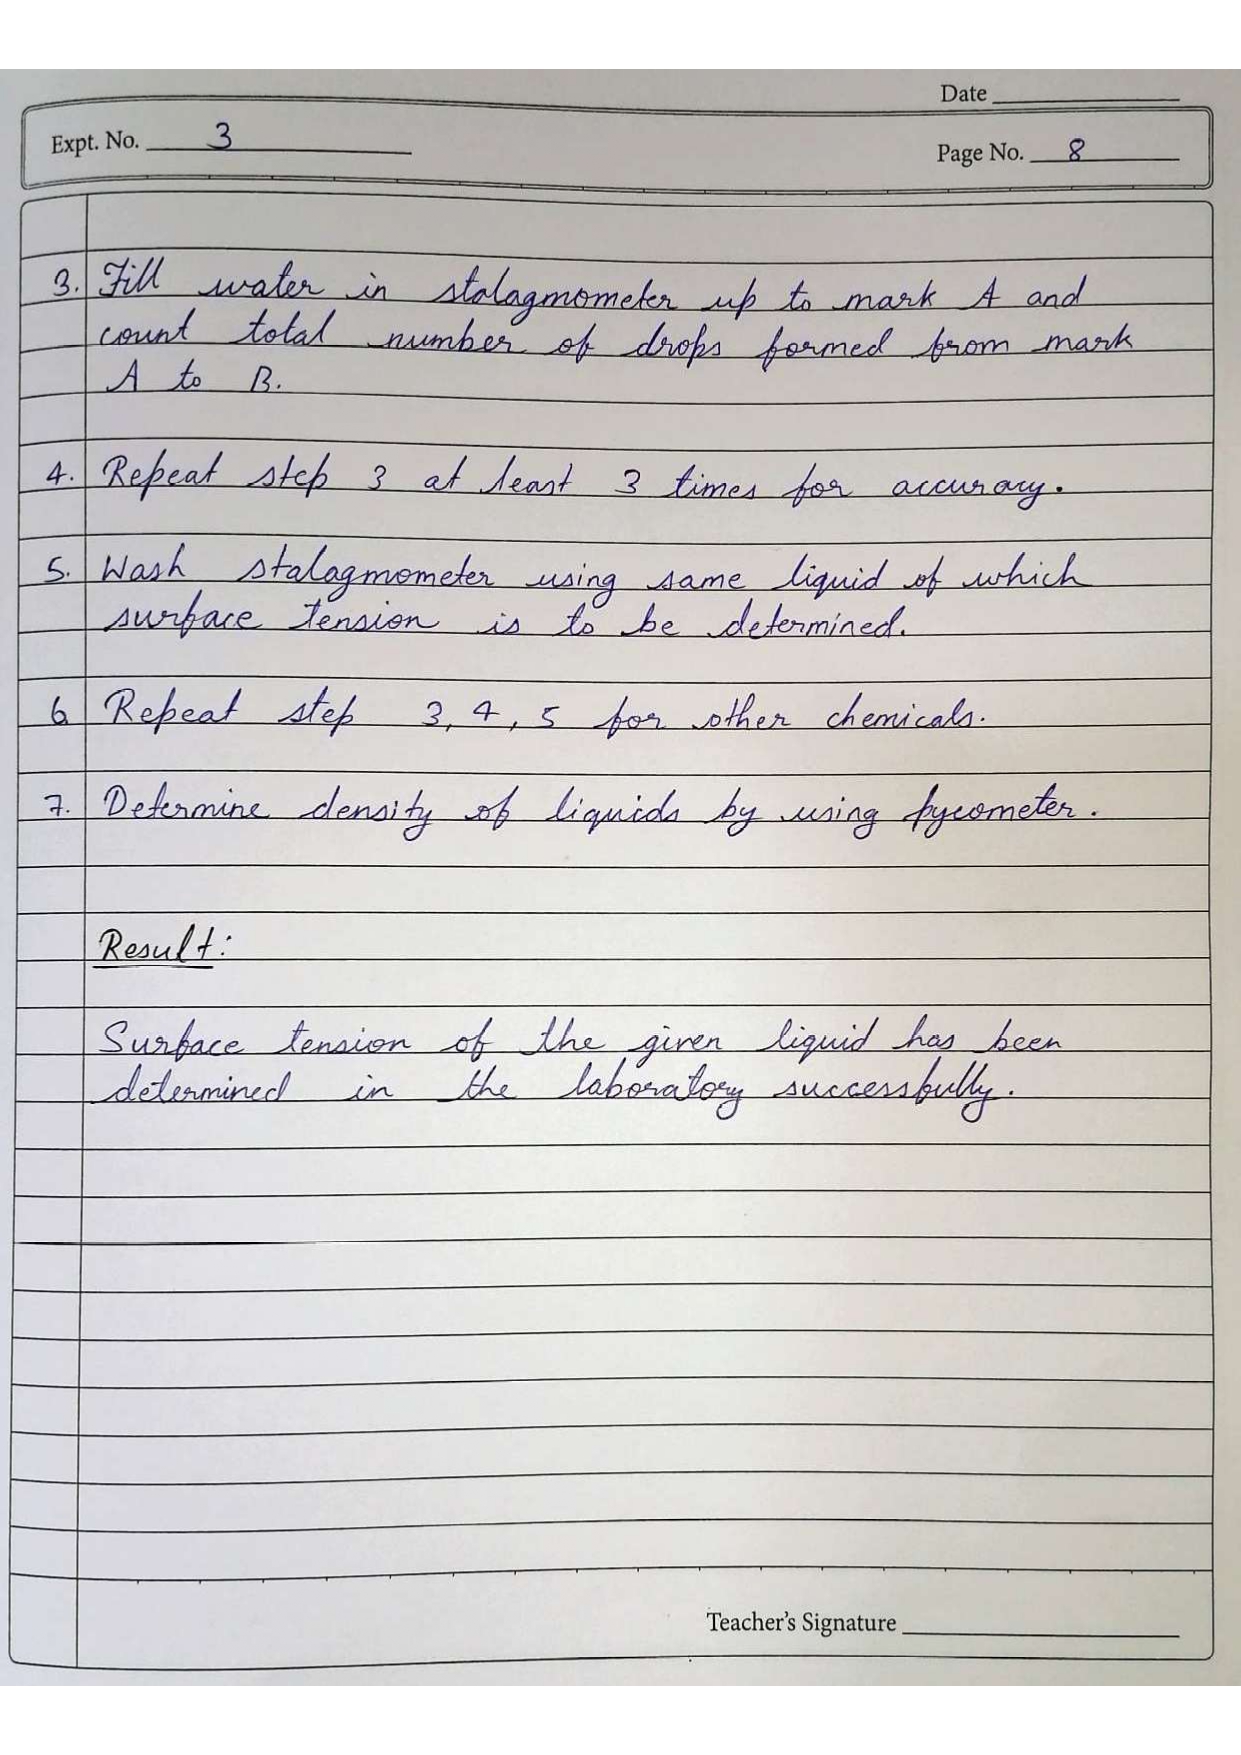 Date
Expt. No. 3
Page No. 8
3. Fill water in stalagmometer up to mark A and
count total number of drops formed from mark
A to B.
4. Repeat step 3 at least 3 times for accuracy.
5. Wash stalagmometer using same liquid of which
surface tension is to be determined.
6 Repeat step 3, 4, 5 for other chemicals.
7. Determine density of liquids by using pycometer.
Result:
Surface tension of the given liquid has been
determined in the laboratory successfully.
Teacher's Signature